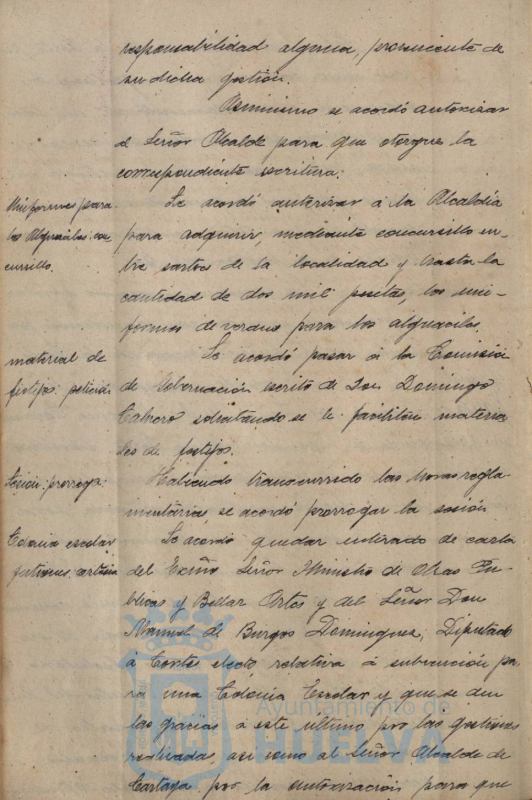 responsabilidad alguna, proviniente de
su dicha gestión.
Asimismo se acordó autorizar
al Señor Alcalde para que otorgue la
correspondiente escritura.
Uniformes para
los Alguaciles: con
cursillo.
Se acordó autorizar á la Alcaldía
para adquirir, mediante concursillo en-
tre sastres de la localidad y hasta la
cantidad de dos mil pesetas, los uni-
formes de verano para los alguaciles.
material de
festejos: petición
Se acordó pasar á la Comisión
de Gobernación escrito de Don Domingo
solicitando se le faciliten materia
les de festejos.
Sesión: prorroga:
Habiendo transcurrido las horas regla-
mentarias, se acordó prorrogar la sesión
Colonia escolar
gestiones: cartas
Se acordó quedar enterado de carta
del Excmo Señor Ministro de Obras Pu-
blicas y Bellas Artes y del Señor Don
Manuel de Burgos Dominguez, Diputado
á Cortes electo relativa á subvención pa
ra una Colonia Escolar y que se den
las gracias á este ultimo por las gestiones
realizadas asi como al Señor Alcalde de
Cartaya por la autorización para que
Ayuntamiento de
HUELVA